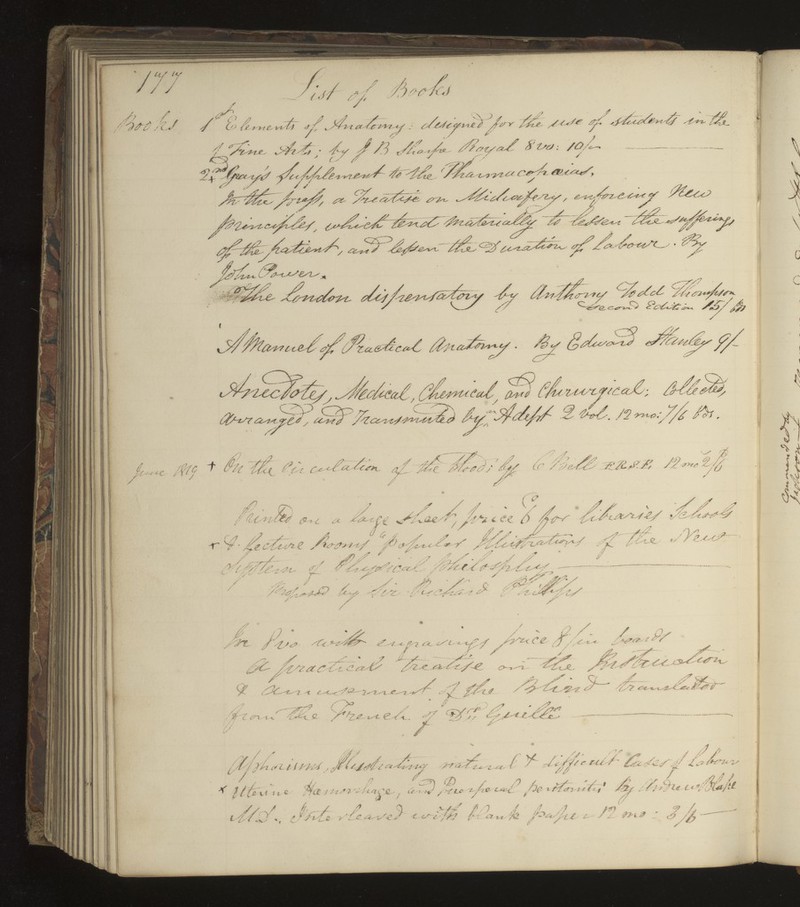 177
List of Books
Books 1st Elements of Anatomy: designed for the use of students in the
Fine Arts; by J B Sharpe Royal 8vo: 10/-
2nd Gray's Supplement to the Pharmacopœias,
In the press, a Treatise on Midwifery, enforcing New
principles, which tend materially to lessen the sufferings
of the patient, and lessen the Duration of Labour. By
John Power.
The London dispensatory by Anthony Todd Thompson
second Edition 15/
A Manuel of Practical Anatomy. By Edward Stanley 9/-
Anecdotes, Medical, Chemical, and Chirurgical; Collected,
arranged, and Transmuted by an Adept 2 Vol. 12mo: 7/6 Bds.
June 1819 + On the Circulation of the blood: by C Bell 12mo 2/6
Printed on a large sheet, price 6 for libraries Schools
x & Lecture Rooms "Popular Illustrations of the New
System of Physical philosophy
by Sir Richard Phillips
In 8vo with engravings price 8/ in boards
a practical treatise on the Instruction
& amusement of the Blind translated
from the French of Dr. Guillé
Aphorisms, Illustrating natural & difficult Cases of Labour
x Uterine Hæmorrhage, and Puerperal Peritonitis By Andrew Blake
MD.. Interleaved with blank paper 12mo: 3/6
commanded by